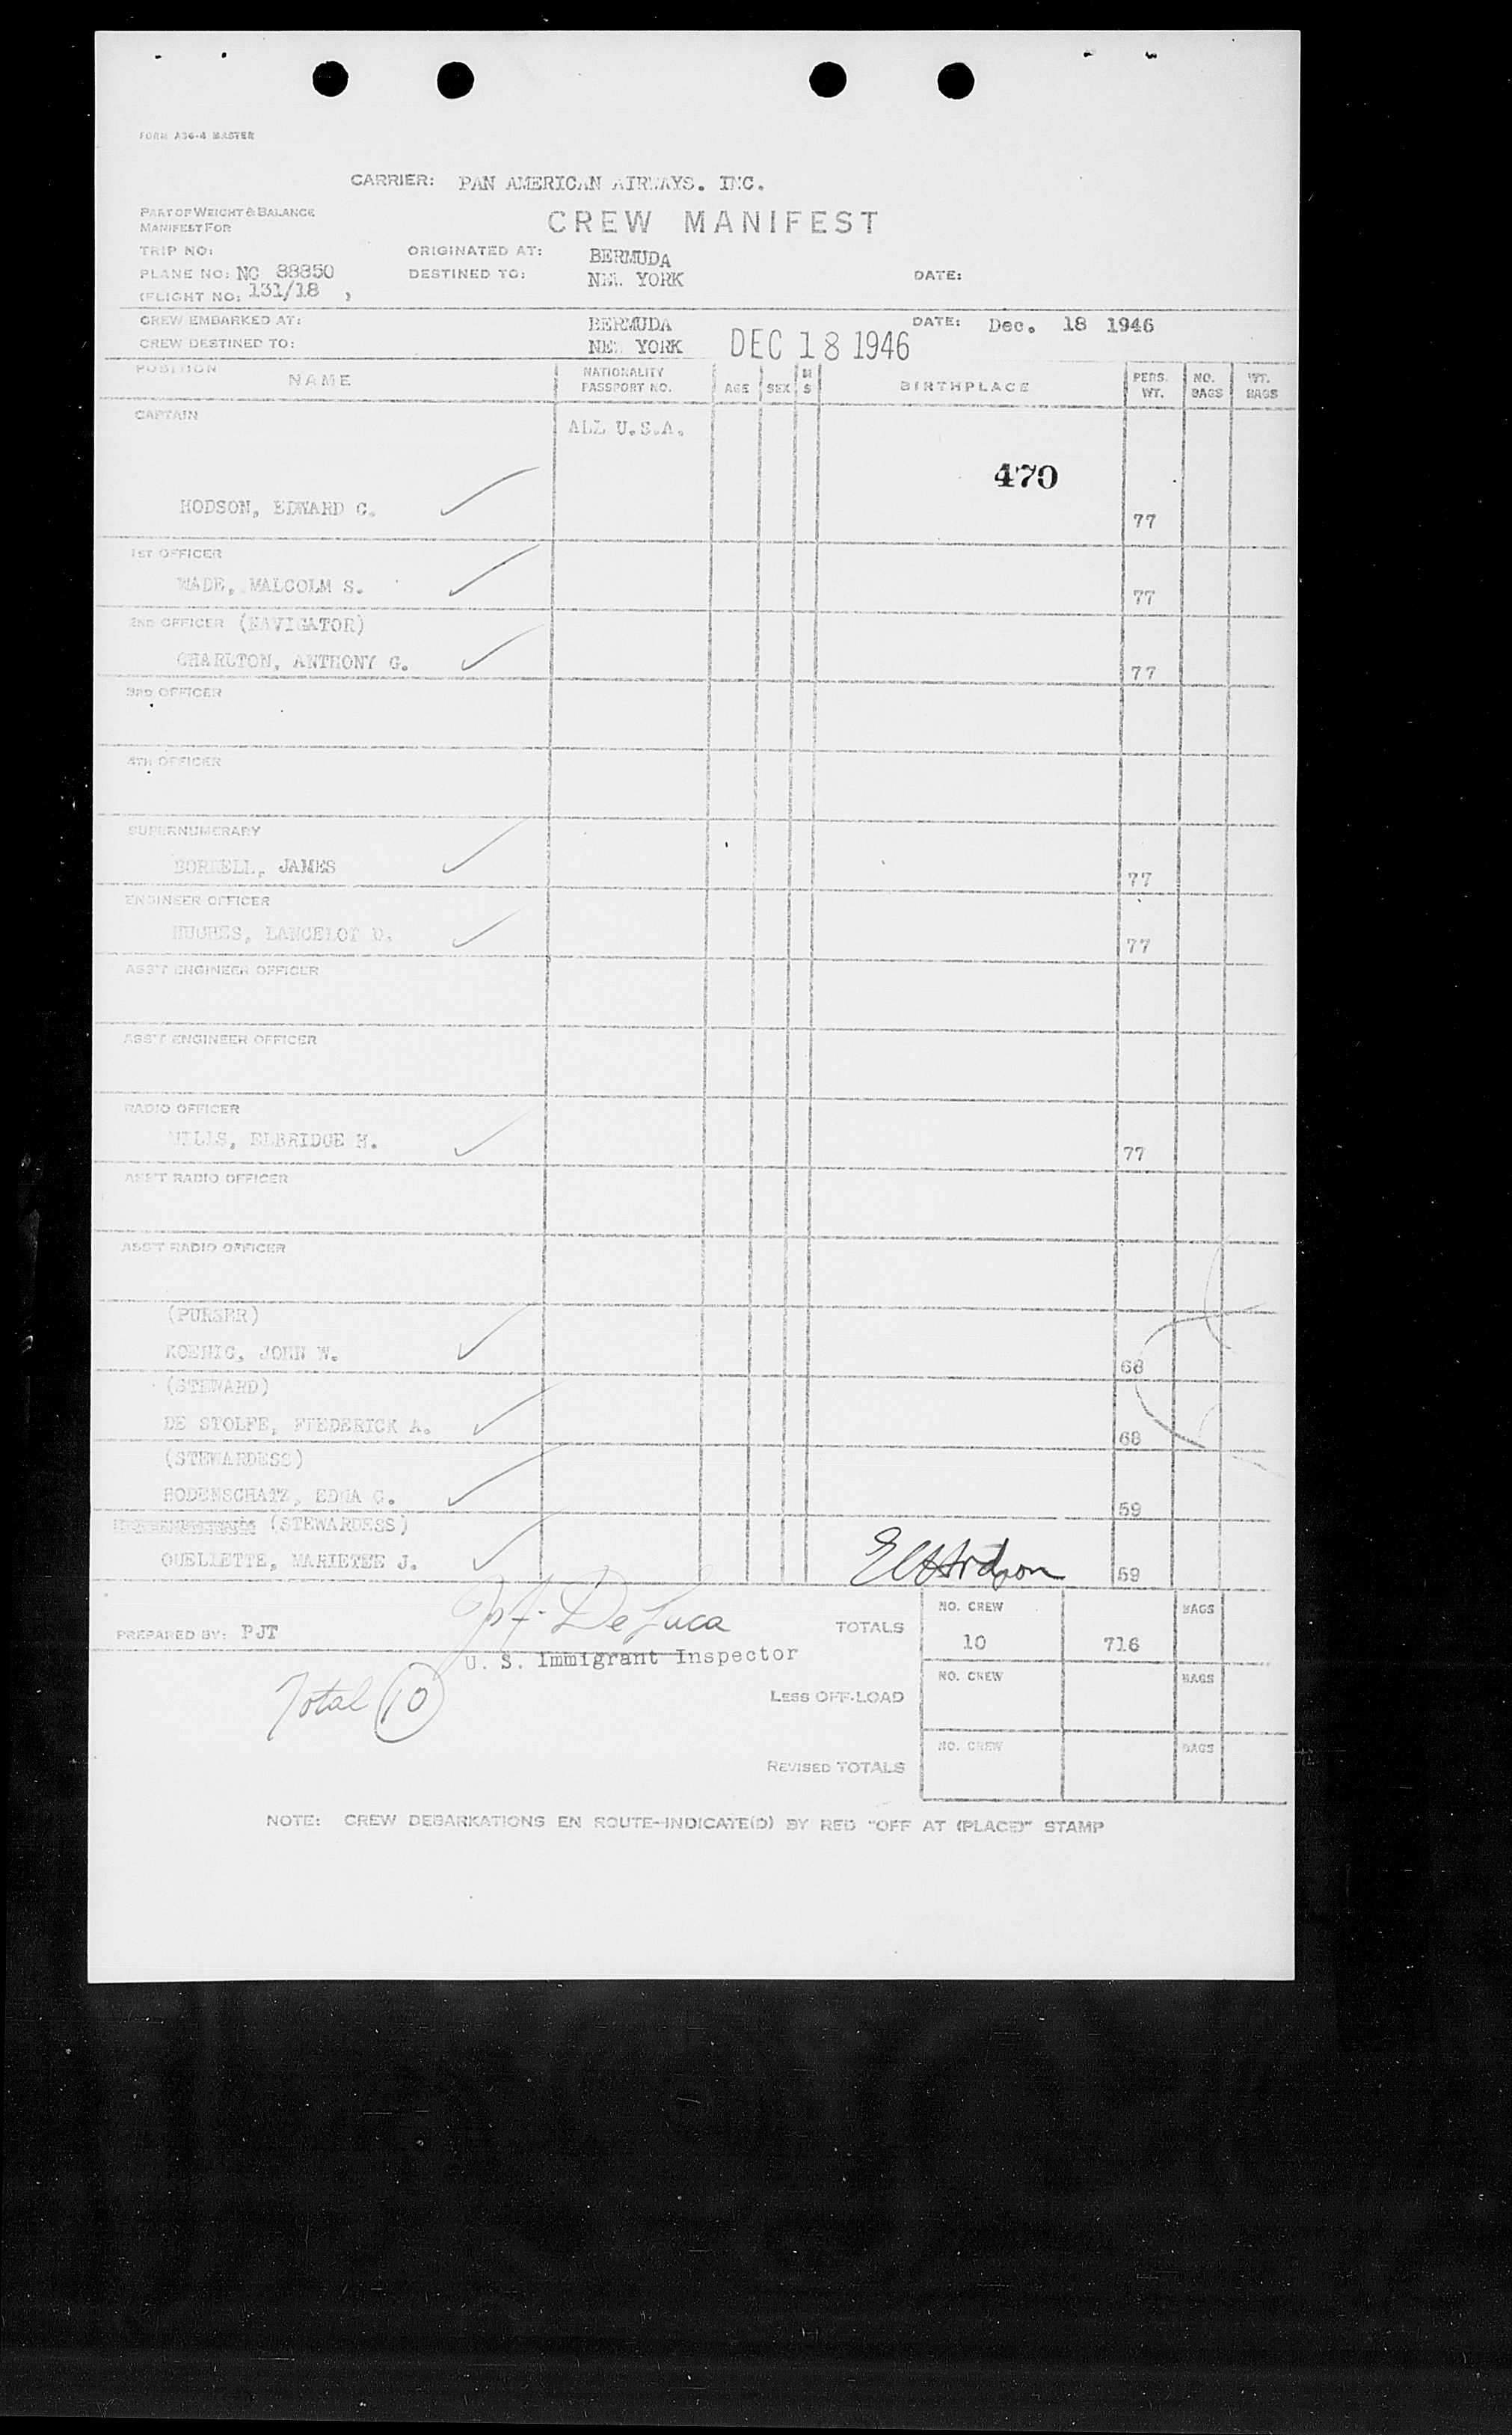 FORM A36-4 MASTER
CARRIER: PAN AMERICAN AIRWAYS. INC.
PART OF WEIGHT & BALANCE
MANIFEST FOR
CREW MANIFEST
TRIP NO: ORIGINATED AT: BERMUDA
PLANE NO: NC 88850 DESTINED TO: NEW YORK DATE:
(FLIGHT NO: 131/18 )
CREW EMBARKED AT: BERMUDA DATE: Dec. 18 1946
CREW DESTINED TO: NEW YORK DEC 18 1946
POSITION NAME NATIONALITY PASSPORT NO. AGE SEX M S BIRTHPLACE PERS. WT. NO. BAGS WT. BAGS
CAPTAIN
ALL U.S.A.
470
HODSON, EDWARD C. 77
1ST OFFICER
WADE, MALCOLM S. 77
2ND OFFICER (NAVIGATOR)
CHARLTON, ANTHONY G. 77
3RD OFFICER
4TH OFFICER
SUPERNUMERARY
JAMES 77
ENGINEER OFFICER
HUGHES, LANCELOT D. 77
ASS'T ENGINEER OFFICER
ASS'T ENGINEER OFFICER
RADIO OFFICER
ELBRIDGE H. 77
ASS'T RADIO OFFICER
ASS'T RADIO OFFICER
(PURSER)
KOENIG, JOHN W. 68
(STEWARD)
DE STOLFE, FREDERICK A. 68
(STEWARDESS)
BODENSCHATZ, EDNA C. 59
(STEWARDESS)
OUELLETTE, MARIETTE J. 59
PREPARED BY: PJT De Luca TOTALS NO. CREW 10 716 BAGS
U. S. Immigrant Inspector
Total 10
LESS OFF-LOAD NO. CREW BAGS
REVISED TOTALS NO. CREW BAGS
NOTE: CREW DEBARKATIONS EN ROUTE-INDICATE(D) BY RED "OFF AT (PLACE)" STAMP